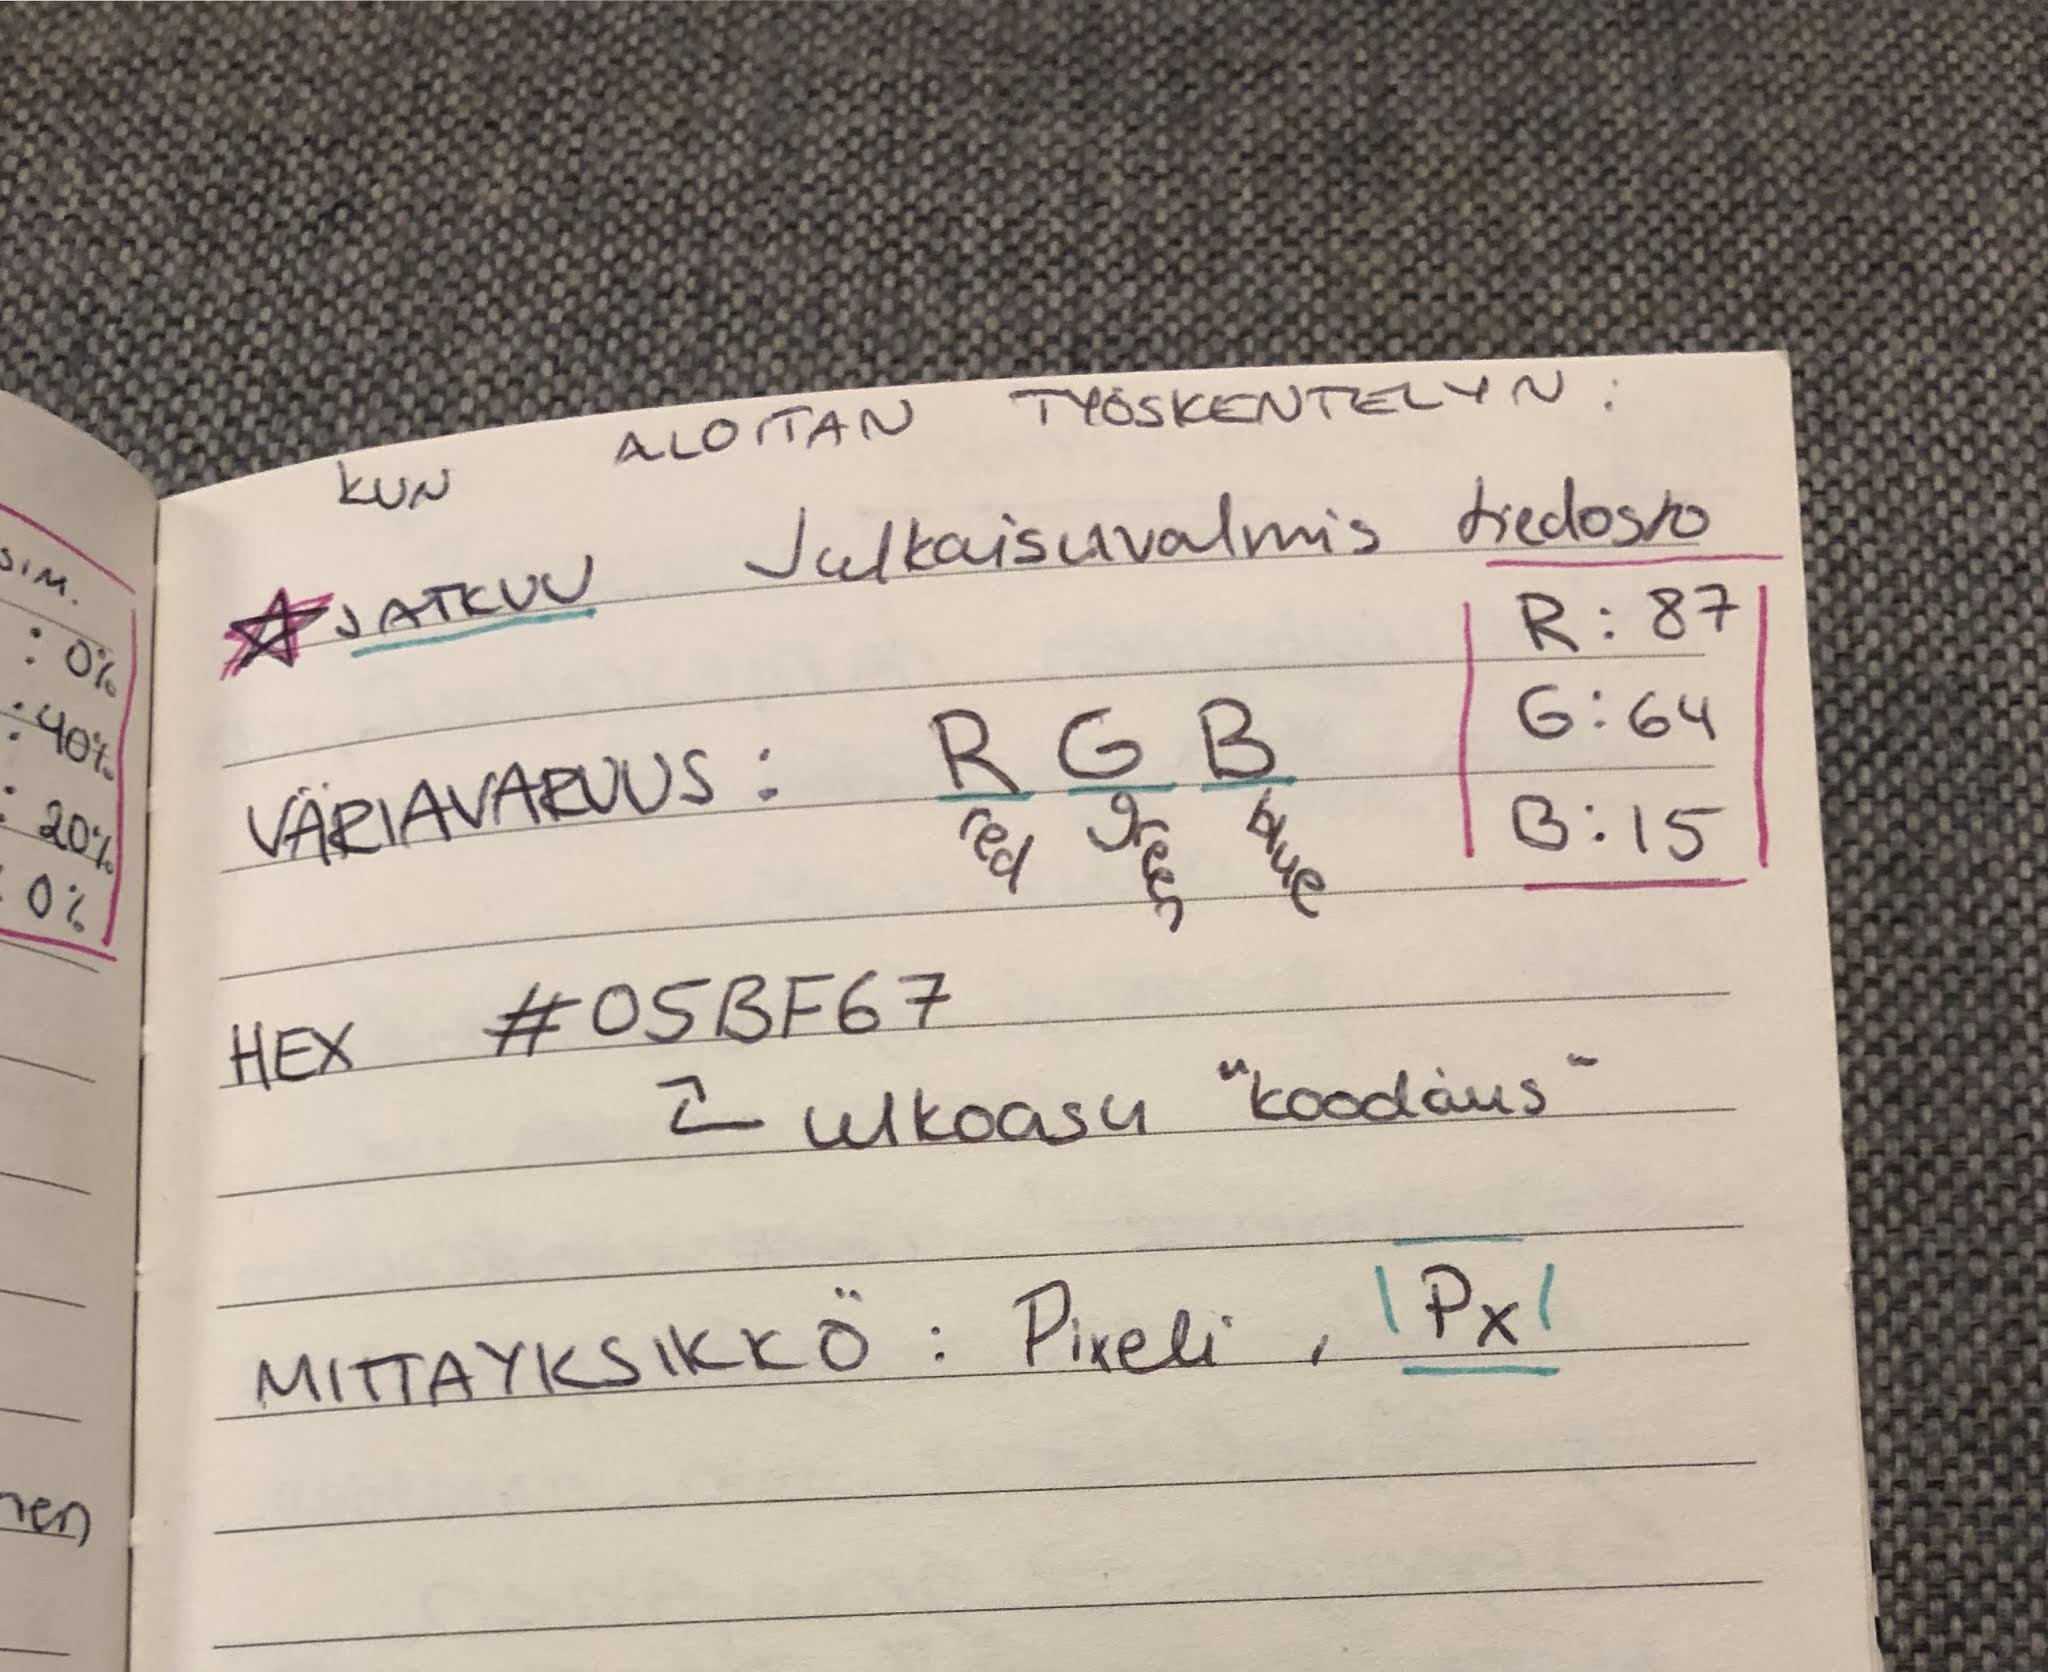 SIM.
: 0%
: 40%
: 20%
: 0%
KUN ALOITAN TYÖSKENTELYN :
JATKUU Julkaisuvalmis tiedosto
R : 87
G : 64
B : 15
VÄRIAVARUUS : R G B
red green blue
HEX #05BF67
ulkoasu "koodaus"
MITTAYKSIKKÖ : Pixeli , Px